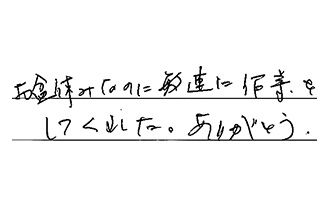 お盆休みなのに敏速に作業を
してくれました。ありがとう.